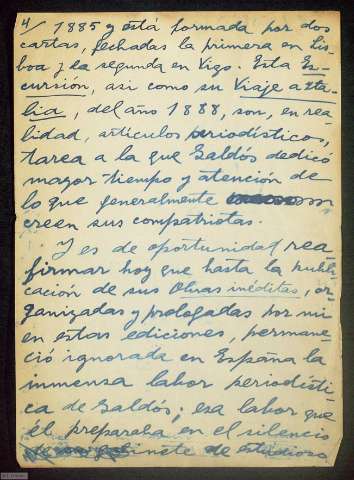 4/ 1885 y está formada por dos
cartas, fechadas la primera en Lis-
boa y la segunda en Vigo. Esta Ex-
cursión, asi como su Viaje a Ita-
lia, del año 1888, son, en rea-
lidad, artículos periodísticos,
tarea a la que Galdós dedicó
mayor tiempo y atención de
lo que generalmente
creen sus compatriotas.
Y es de oportunidad rea-
firmar hoy que hasta la publi-
cación de sus Obras inéditas, or-
ganizadas y prologadas por mi
en estas ediciones, permane-
ció ignorada en España la
inmensa labor periodísti-
ca de Galdós; esa labor que
él preparaba en el silencio
gabinete de estudioso